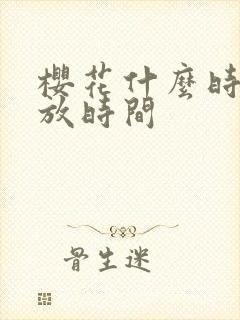 櫻花什麼時
放時間
骨生迷